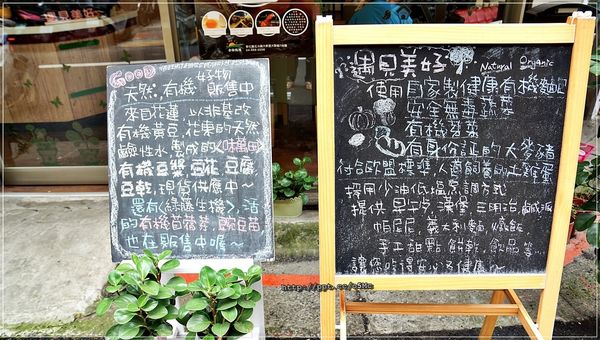 Good
天然.有機 好物
販售中
來自花蓮 以非基改
有機黃豆,花東的天然
鹼性水 製成的<味萬田>
有機豆漿.豆花.豆腐
豆乾,現貨供應中~
還有<綠藤生機>,活
的有機苜蓿芽.豌豆苗
也在販售中喔~
遇見美好
Natural Organic
使用自家製健康有機麵包
安全無毒蔬菜
有機芽菜
有身份證的大麥豬
符合歐盟標準,人道飼養的土雞蛋
採用少油低鹽烹調方式
提供早午餐.漢堡.三明治.鹹派
帕尼尼.義大利麵.燉飯
手工甜點.餅乾.飲品等...
讓您吃得安心又健康~